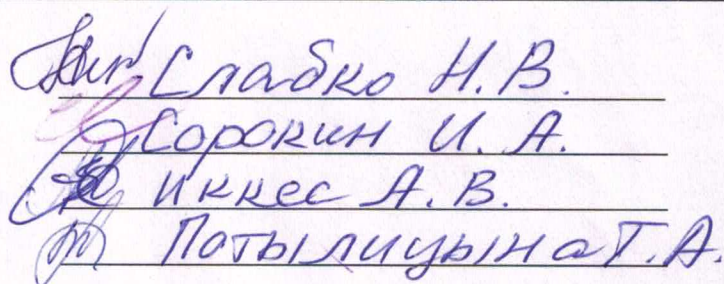 Слабко Н.В.
Сорокин И.А.
Иккес А.В.
Потылицына Т.А.